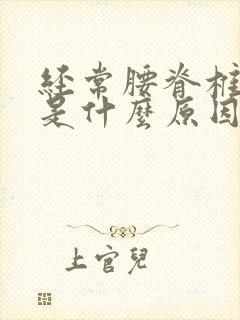 经常腰脊椎
是什麼原因
上官兒